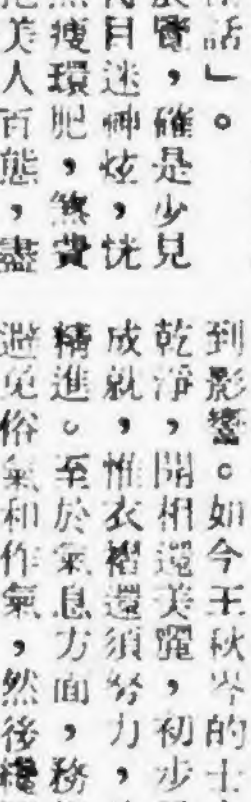 話」。
覽，確是少見
目迷神炫，恍
瘦環肥，煞費
美人百態，盡
到影響。如今王秋岑的士
乾淨，開相還美麗，初步
成就，惟衣褶還須努力，
精進。至於氣息方面，務
避免俗氣和作氣，然後纔